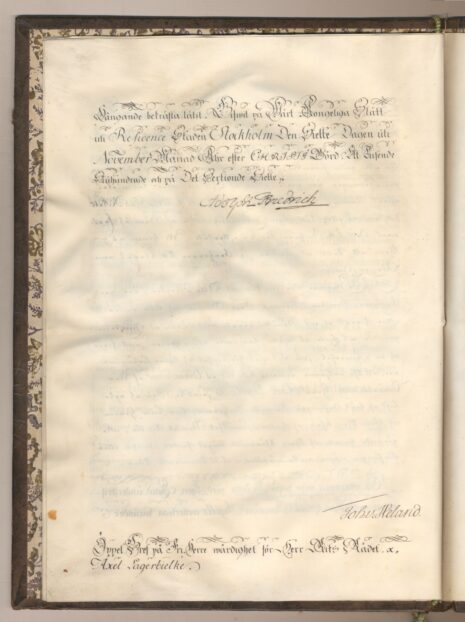 hängande bekräfta låtit. Gifwit på Wårt Kongeliga Slått
uti Residence Staden Stockholm Den Siette Dagen uti
November Månad Åhr efter CHRISTI Börd. Ett Tusende
Siuhundrade och på Det Sextionde Siette.
Adolph Friedrich
Joh: v: Heland.
Öppet Bref på Fri Herre wärdighet för Herr Riks Rådet. x.
Axel Lagerbielke.